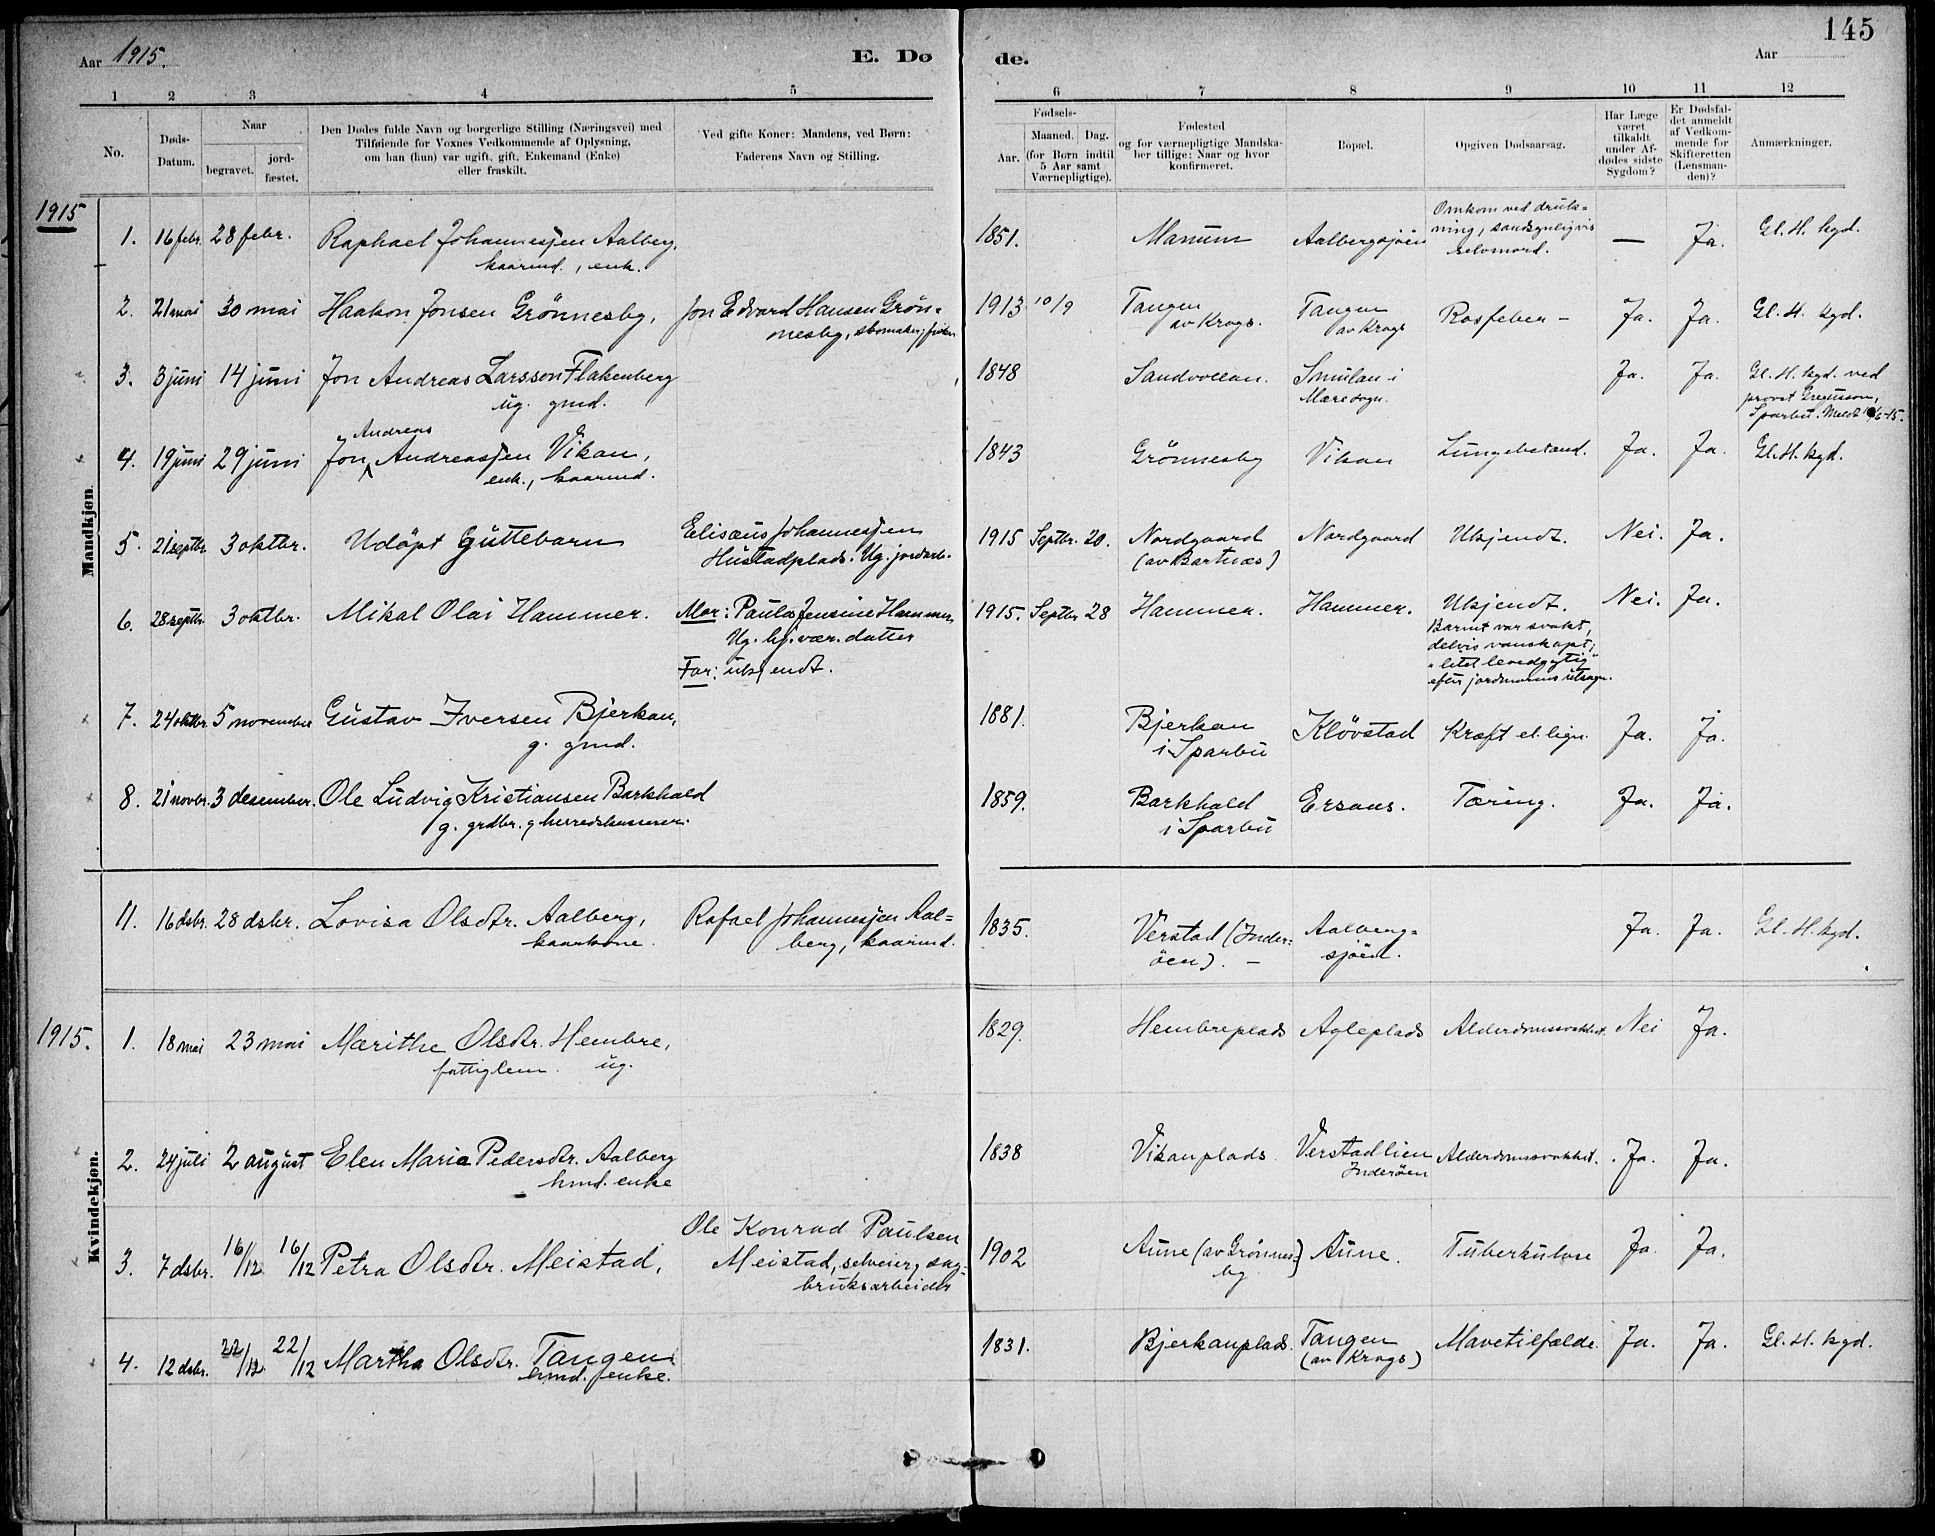 145
Aar 1915.
E. Dø
de.
Aar
1 2 3 4 5 6 7 8 9 10 11 12
No.
Døds-
Datum.
Naar
begravet.
jord-
fæstet.
Den Dødes fulde Navn og borgerlige Stilling (Næringsvei) med
Tilføiende for Voxnes Vedkommende af Oplysning,
om han (hun) var ugift, gift, Enkemand (Enke)
eller fraskilt.
Ved gifte Koner: Mandens, ved Børn:
Faderens Navn og Stilling.
Fødsels-
Aar.
Maaned. Dag.
(for Børn indtil
5 Aar samt
Værnepligtige).
Fødested
og for værnepligtige Mandska-
ber tillige: Naar og hvor
konfirmeret.
Bopæl.
Opgiven Dødsaarsag.
Har Læge
været
tilkaldt
under Af-
dødes sidste
Sygdom?
Er Dødsfal-
det anmeldt
af Vedkom-
mende for
Skifteretten
(Lensman-
den)?
Anmærkninger.
1915
Mandkjøn
1. 16 febr. 28 febr. Raphael Johannesjen Aalberg.
kaarmd., enk.
1851. Manum Aalbergsjøen
Omkom ved druk-
ning, sandsynligvis
selvmord.
— Ja. Gl. H. kgd.
2. 21 mai 30 mai Haakon Jonsen Grönnesby,
Jon Edvard Hansen Grön-
nesby, skomaker,
1913 10/9 Tangen
av Krogs.
Tangen
av Krogs
Rosfeber – Ja. Ja. Gl. H. kgd.
3. 3 juni 14 juni Jon Andreas Larsson Flakenberg
ug. gmd.
1848 Sandvollan. Smulan i
Mære sogn.
Ja. Ja. Gl. H. kgd. ved
provst Gregusson,
Sparbu. Meldt 6-15.
4. 19 juni 29 juni Jon Andreasjen Vikan,
Andreas
enk., kaarmd.
1843 Grönnesby Vikan Lungebetænd. Ja. Ja. Gl. H. kgd.
5. 21 septbr. 3 oktbr. Udöpt Guttebarn
Elisæus Johannesjen
Hustadplads. Ug. jordarb.
1915 Septbr. 20. Nordgaard
(av Bartnæs)
Nordgaard Ukjendt. Nei. Ja.
6. 28 septbr. 3 oktbr. Mikal Olai Hammer.
Mor: Paula Jensine Hammer
Ug. hj.vær. datter
Far: ukjendt.
1915. Septbr 28 Hammer. Hammer. Ukjendt.
Barnet var svakt,
delvis vanskapt;
"litet levedygtig"
efter jordmorens utsagn.
Nei. Ja.
7. 24 oktbr. 5 november Gustav Iversen Bjerkan,
g. gmd.
1881. Bjerkan
i Sparbu
Klövstad Kræft el. lign. Ja. Ja.
8. 21 novbr. 3 desember. Ole Ludvig Kristiansen Barkhald
g. grdbr. g herredskasserer.
1859. Barkhald
i Sparbu
Ersaas. Tæring. Ja. Ja.
11. 16 dsbr. 28 dsbr. Lovisa Olsdtr. Aalberg,
kaarkone.
Rafael Johannesjen Aal-
berg, kaarmd.
1835. Verstad (Inder-
öen). –
Aalberg-
sjøen.
Ja. Ja. Gl. H. kgd.
1915.
Kvindekjøn.
1. 18 mai 23 mai Mærithe Olsdtr. Hembre,
fattiglem. ug.
1829. Hembreplads Agleplads Alderdomssvakhet. Nei Ja.
2. 24 juli 2 august Elen Maria Pedersdtr. Aalberg
hmd. enke
1838 Vikanplads. Verstadlien
Inderöen
Alderdomssvakhet. Ja. Ja.
3. 7 dsbr. 16/12 16/12 Petra Olsdtr. Meistad,
Ole Konrad Paulsen
Meistad, selveier, sag-
bruksarbeider
1902 Aune (av Grönnes-
by)
Aune. Tuberkulose Ja. Ja.
4. 12 dsbr. 22/12 22/12 Martha Olsdtr. Tangen
hmd. enke.
1831. Bjerkanplads. Tangen
(av Krogs)
Mavetilfælde. Ja. Ja. Gl. H. kgd.